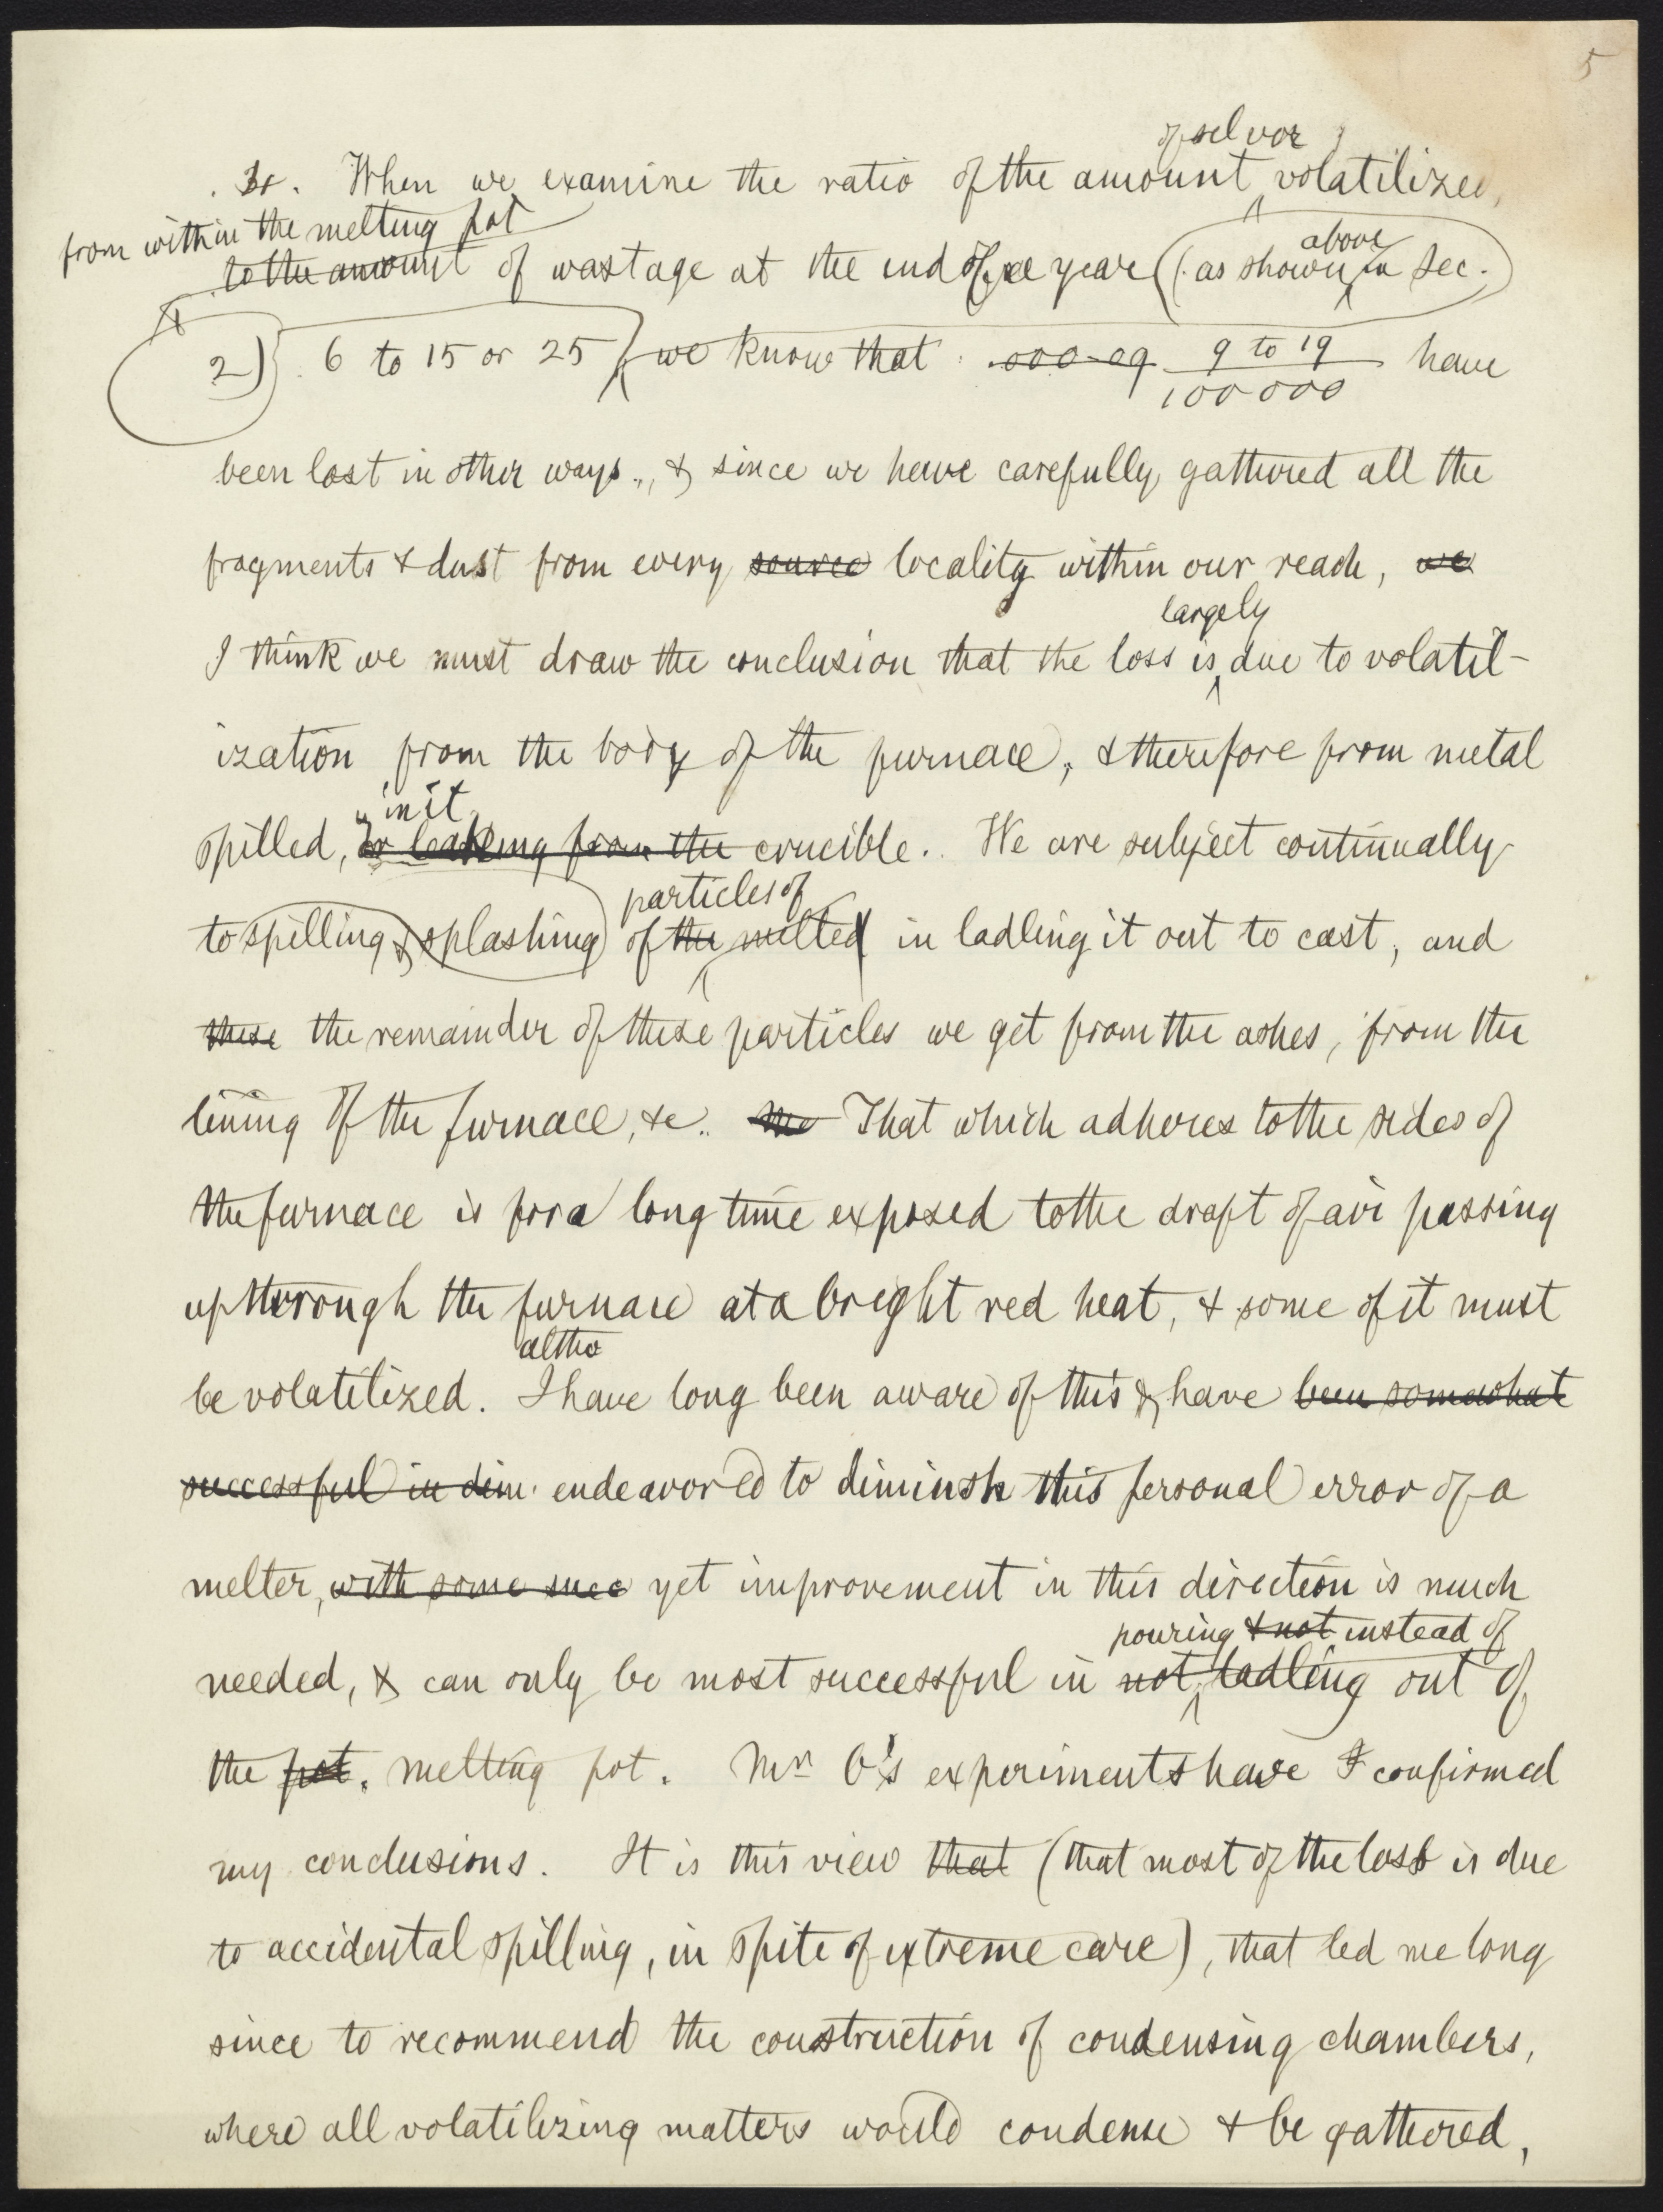 5
of silver
3. When we examine the ratio of the amount volatilized,
from within the melting pot
to the amount of wastage at the end of a year (as shown in Sec.
above
2) 6 to 15 or 25 we know that .000-09 9 to 19 have
100 000
been lost in other ways., & since we have carefully gathered all the
fragments & dust from every source locality within our reach, we
largely
I think we must draw the conclusion that the loss is due to volatil-
ization from the body of the furnace, & therefore from metal
in it
spilled, or leaking from the crucible. We are subject continually
particles of
to spilling & splashing of the melted in ladling it out to cast, and
these the remainder of these particles we get from the ashes, from the
lining of the furnace, &c. That which adheres to the sides of
the furnace is for a long time exposed to the draft of air passing
up through the furnace at a bright red heat, & some of it must
altho
be volatilized. I have long been aware of this & have been somewhat
successful in dim. endeavored to diminsh this personal error of a
melter, with some succ yet improvement in this direction is much
pouring & not instead of
needed, & can only be most successful in not ladling out of
the pot. melting pot. Mr O's experiments have confirmed
my conclusions. It is this view that (that most of the loss is due
to accidental spilling, in spite of extreme care), that led me long
since to recommend the construction of condensing chambers,
where all volatilizing matters would condense & be gathered,